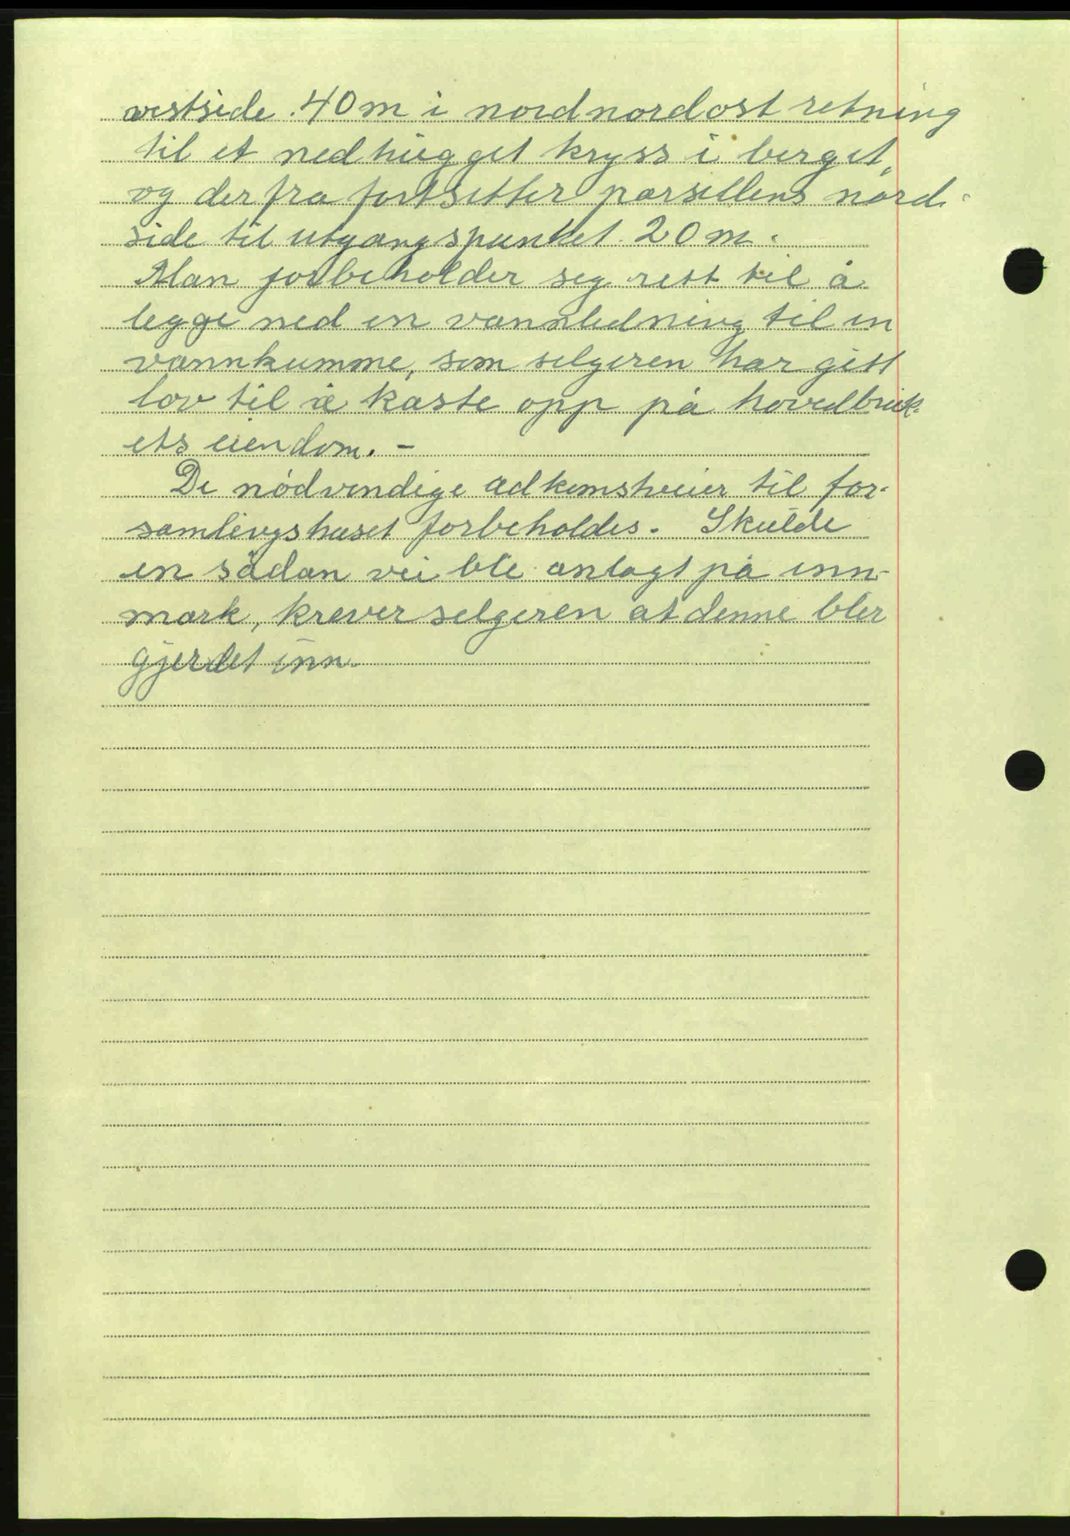 vestside. 40 m i nordnordost retning
til et nedhugget kryss i berget,
og derfra fortsetter parsellens nord-
side til utgangspunktet 20 m.
Man forbeholder seg rett til å
legge ned en vannledning til en
vannkumme, som selgeren har gitt
lov til å kaste opp på hovedbruk-
ets eiendom. -
De nødvendige adkomstveier til for-
samlingshuset forbeholdes. Skulde
en sådan vei ble anlagt på inn-
mark, krever selgeren at denne bler
gjerdet inn.